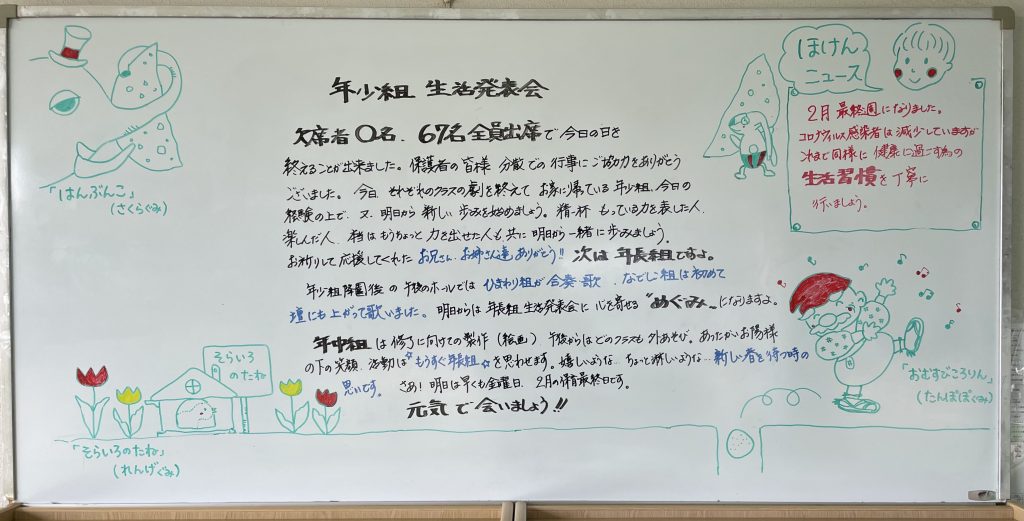 年少組 生活発表会
欠席者0名、67名全員出席で今日の日を
終えることが出来ました。保護者の皆様 分散での行事にご協力をありがとう
ございました。今日、それぞれのクラスの劇を終えて お家に帰っている年少組、今日の
経験の上で、又、明日から新しい歩みを始めましょう。精一杯 もっている力を表した人、
楽しんだ人、本当はもうちょっと力を出せた人も、共に明日から一緒に歩みましょう。
お祈りして応援してくれた お兄さん、お姉さん達ありがとう!! 次は年長組ですよ。
年少組降園後の午後のホールでは ひまわり組が合奏・歌、なでしこ組は初めて
壇にも上がって歌いました。明日からは年長組生活発表会に心を寄せる〝めぐみ〟になりますよ。
年中組は修了に向けての製作(絵画) 午後からはどのクラスも外あそび。あったかいお陽様
の下の笑顔、活動は☆もうすぐ年長組☆を思わせます。嬉しいような、ちょっと淋しいような…新しい春を待つ時の
思いです。 さあ!明日は早くも金曜日、2月の保育最終日です。
元気で会いましょう!!
「はんぶんこ」
(さくらぐみ)
ほけん
ニュース
2月最終週になりました。
コロナウィルス感染者は減少していますが
これまで同様に健康に過ごす為の
生活習慣を丁寧に
行いましょう。
そらいろ
のたね
「そらいろのたね」
(れんげぐみ)
「おむすびころりん」
(たんぽぽぐみ)